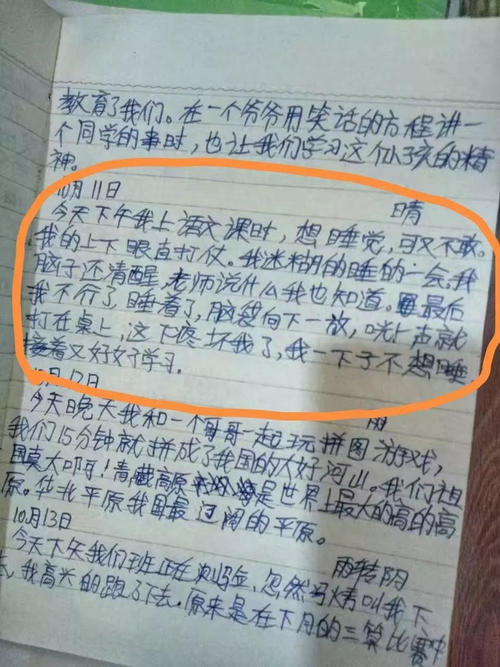 教育了我们。在一个爷爷用笑话的方程讲一
个同学的事时，也让我们学习这个小孩的精
神。
10月11日 晴
今天下午我上语文课时，想睡觉，可又不敢。
我的上下眼直打仗。我迷糊的睡的一会，我
脑子还清醒，老师说什么我也知道。最后
我不行了，睡着了，脑袋向下一放，咣上声就
打在桌上，这下疼坏我了，我一下子不想睡
接着又好好学习。
月12日 雨
今天晚天我和一个哥哥一起玩拼图游戏，
我们15分钟就拼成了我国的大好河山。我们祖
国莫大啊！青藏高原是世界上最大的高的高
原。华北平原我国最阔的平原。
10月13日 雨转阴
今天下午我们班正在测验，忽然冯叫我下
去，我高兴的跑了下去。原来是在下月的三算比赛中